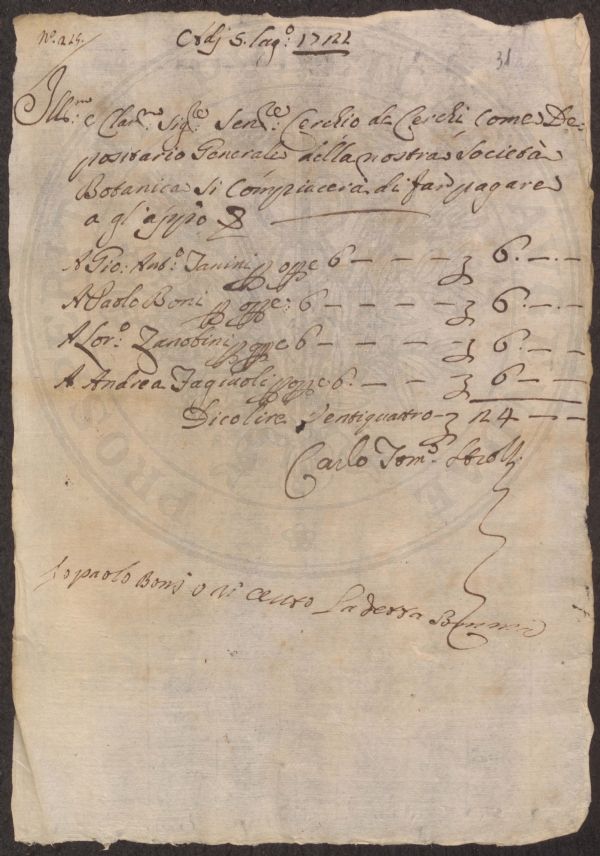 N.º 225.
Adj 5. lag.º 1722
31
Ill.mo e Clar.mo Sig.re Sen.re Cerchio de Cerchi Come De-
positario Generale della nostra Società
Botanica si Compiacerà di far pagare
a gl' app.o
A Gio: Ant.º Janini p opre 6 — — — 6. — —
A Paolo Boni p opre: 6 — — — 6 — —
A Lor.º Zanobini p opre 6 — — — 6. — —
A Andrea Fagiuoli p opre 6. — — — 6 — —
Dico lire Ventiquattro — 24 — —
Carlo Tom.º Strozzi
Io paolo Bonj o ri ceuto La detta Somma